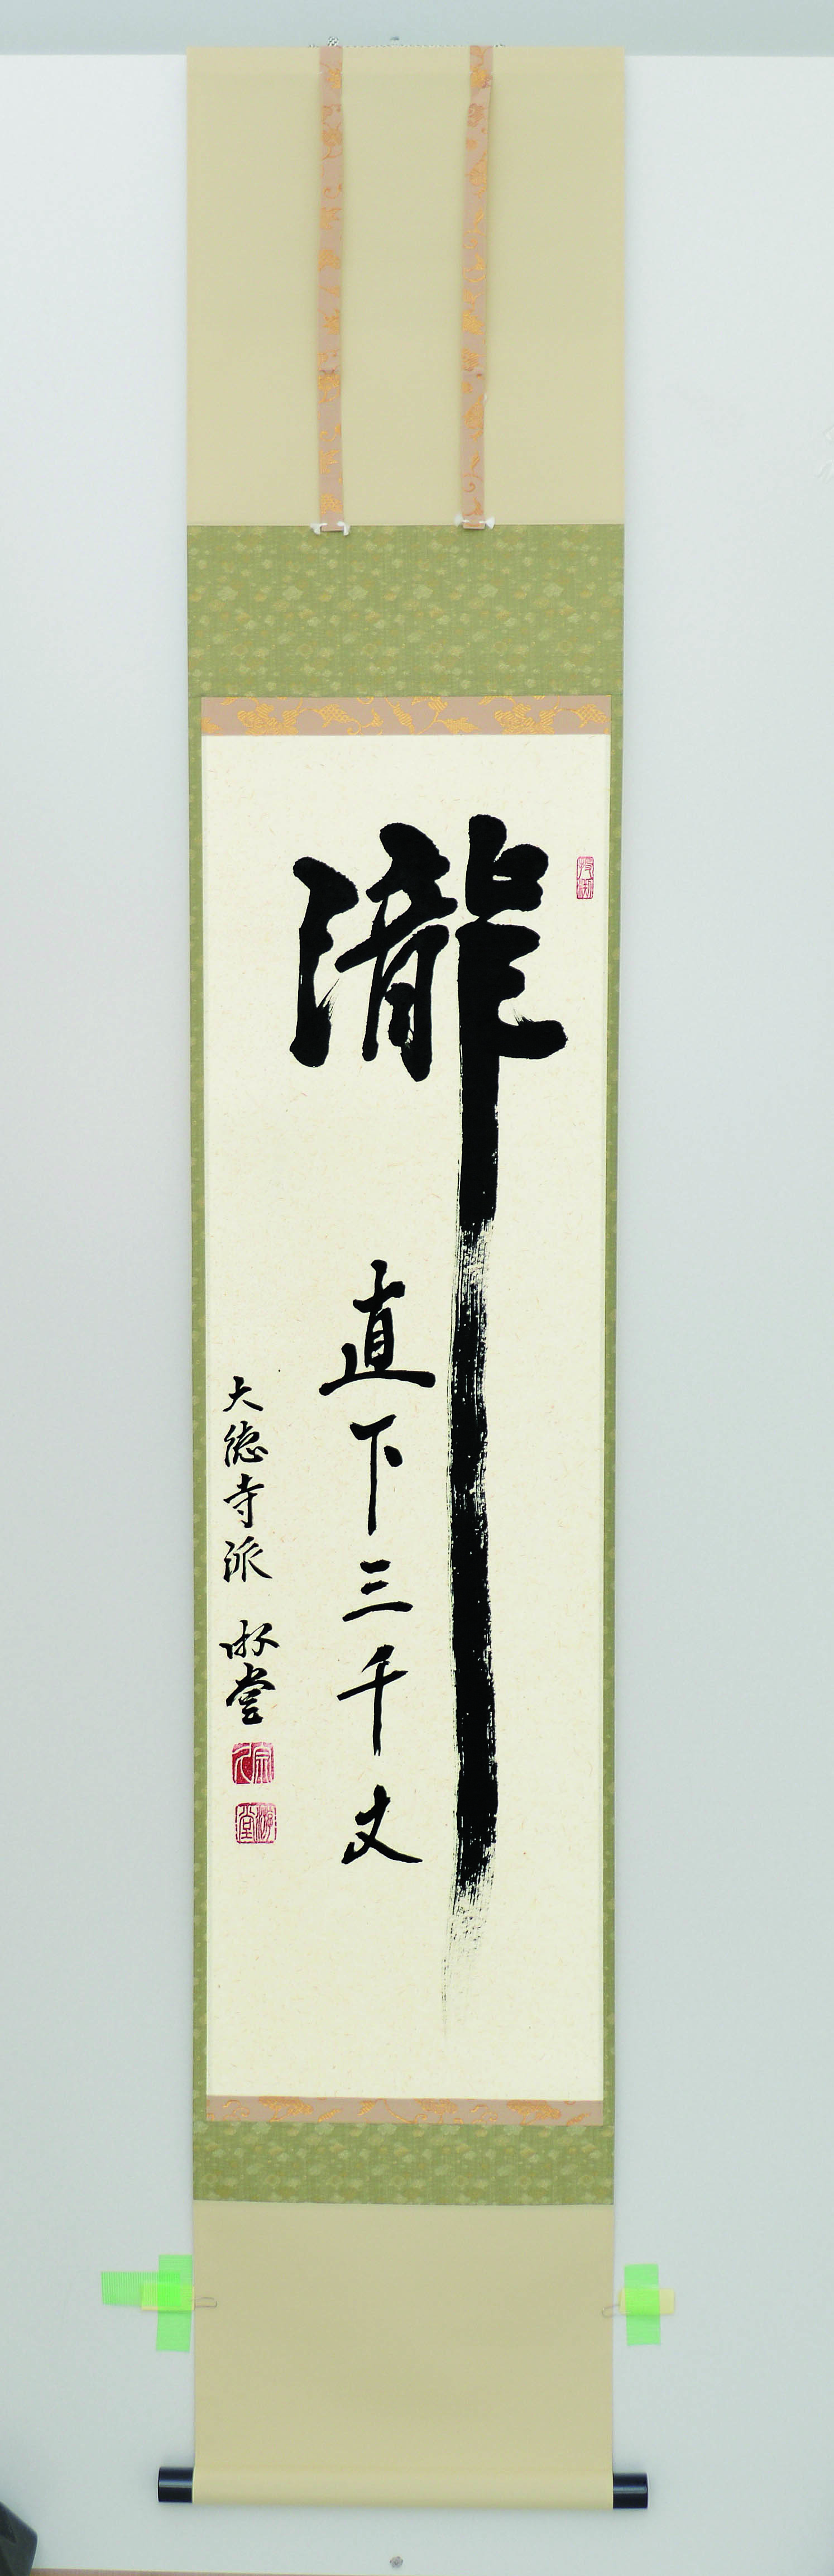 瀧
直下三千丈
大徳寺派